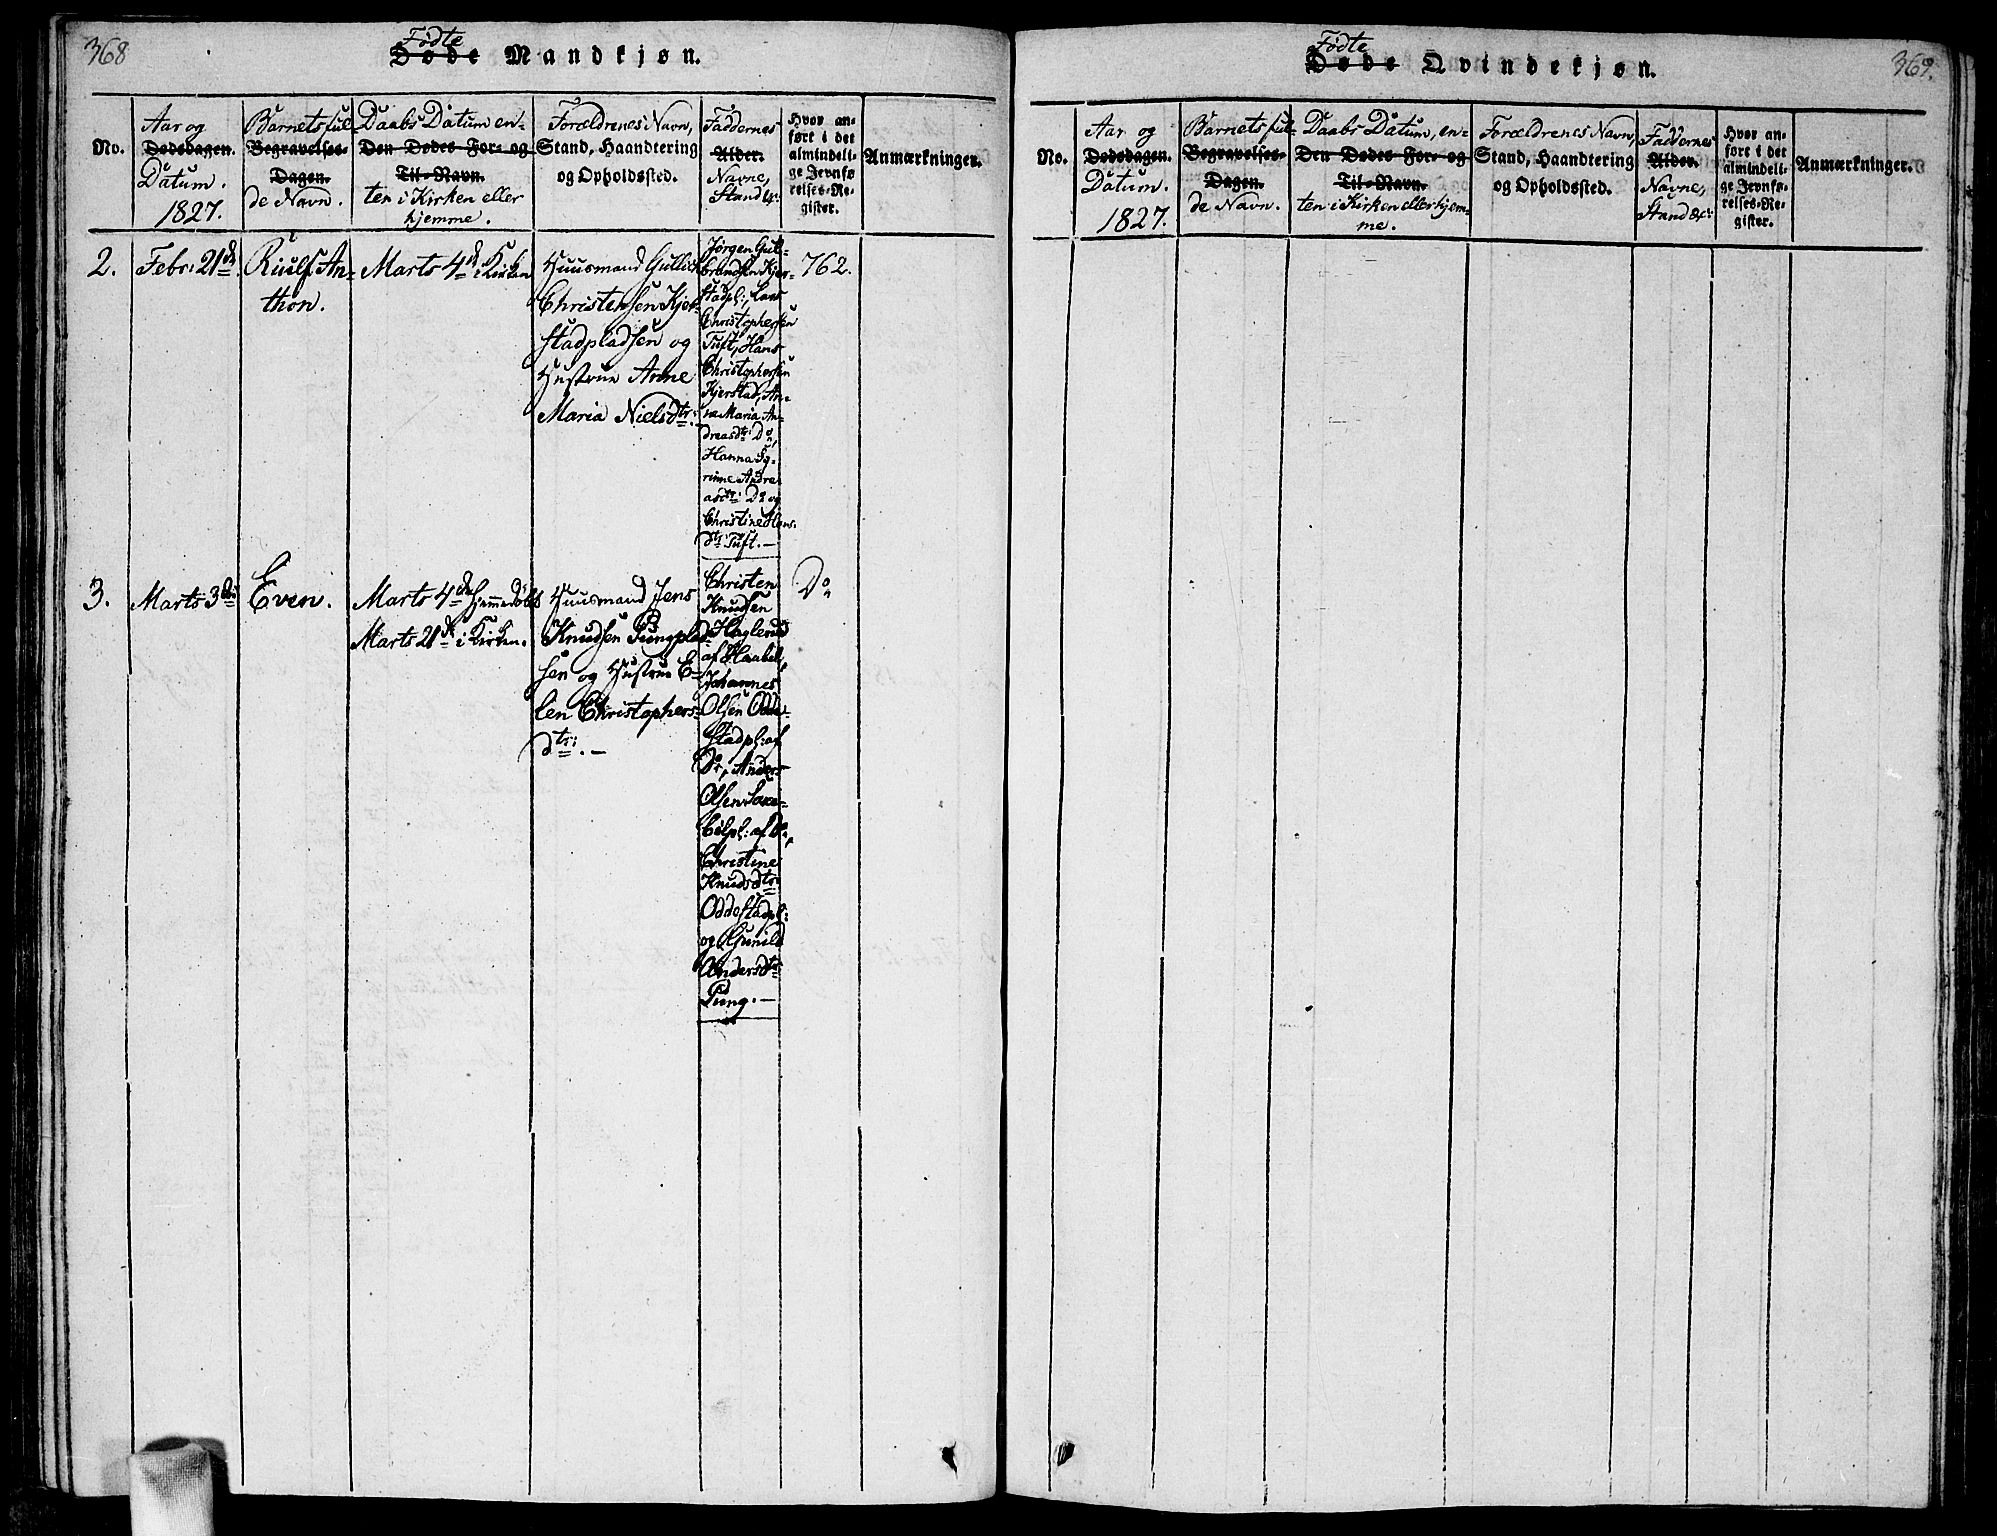 368
Fødte
Døde Mandkjøn.
No.
Aar og
Dødsdagen.
Datum.
1827.
Barnets ful-
Begravelses-
Dagen.
de Navn.
Daabs Datum en-
Den Dødes For- og
Til-Navn.
ten i Kirken eller
hjemme.
Forældrenes Navn,
Stand, Haandtering
og Opholdssted.
Faddernes
Alder.
Navne,
Stand &c:
Hvor an-
ført i det
almindeli-
ge Jevnfø
relses-Re-
gister.
Anmærkninger.
2.
Febr: 21de
Ruulf An-
thon.
Marts 4de i Kirken
Huusmand Gullich
Christensen Kjer-
stadpladsen og
Hustrue Anne
Maria Nielsdtr:
Jørgen Gul-
brandsen Kjer-
stadpl:, Lars
Christophersen
Tuft, Hans
Christophersen
Kjerstad, An-
ne Maria An-
dreasdtr: Do,
Hanna Sy-
rinne Andre
asdtr: Do og
Christine Hans-
dtr: Tuft.—
762.
3.
Marts 3die
Even.
Marts 4de hjemmedøbt
Marts 21de i Kirken.
Huusmand Jens
Knudsen Pungplad-
sen og Hustrue E-
len Christophers-
dtr:.—
Christen
Knudsen
Haglund
af Haabøl,
Johannes
Olsen Odde-
stadpl: af
Do, Anders
Olsen
af Do,
Christine
Knudsdtr:
Oddestadpl:
og Gunild
Andersdtr:
Pung.—
Do
369.
Fødte
Døde Qvindekjøn.
No.
Aar og
Dødsdagen.
Datum.
1827.
Barnets ful-
Begravelses-
Dagen.
de Navn.
Daabs Datum, en-
Den Dødes For- og
Til-Navn.
ten i Kirken eller hjem-
me.
Forældrenes Navn,
Stand, Haandtering
og Opholdssted.
Faddernes
Alder.
Navne,
Stand &c:
Hvor an-
ført i det
almindeli-
ge Jevnfø-
relses-Re-
gister.
Anmærkninger.